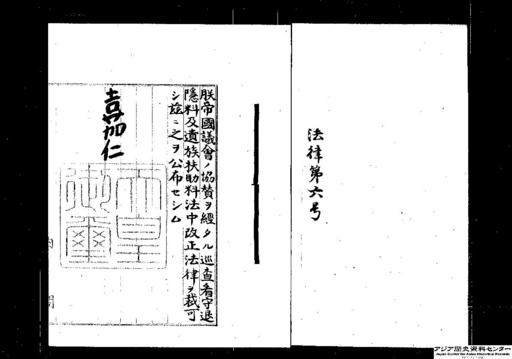 法律第六号
朕帝國議會ノ協賛ヲ經タル巡査看守退
隱料及遺族扶助料法中改正法律ヲ裁可
シ茲ニ之ヲ公布セシム
嘉仁
天皇
御璽
内閣
アジア歴史資料センター
Japan Center for Asian Historical Records